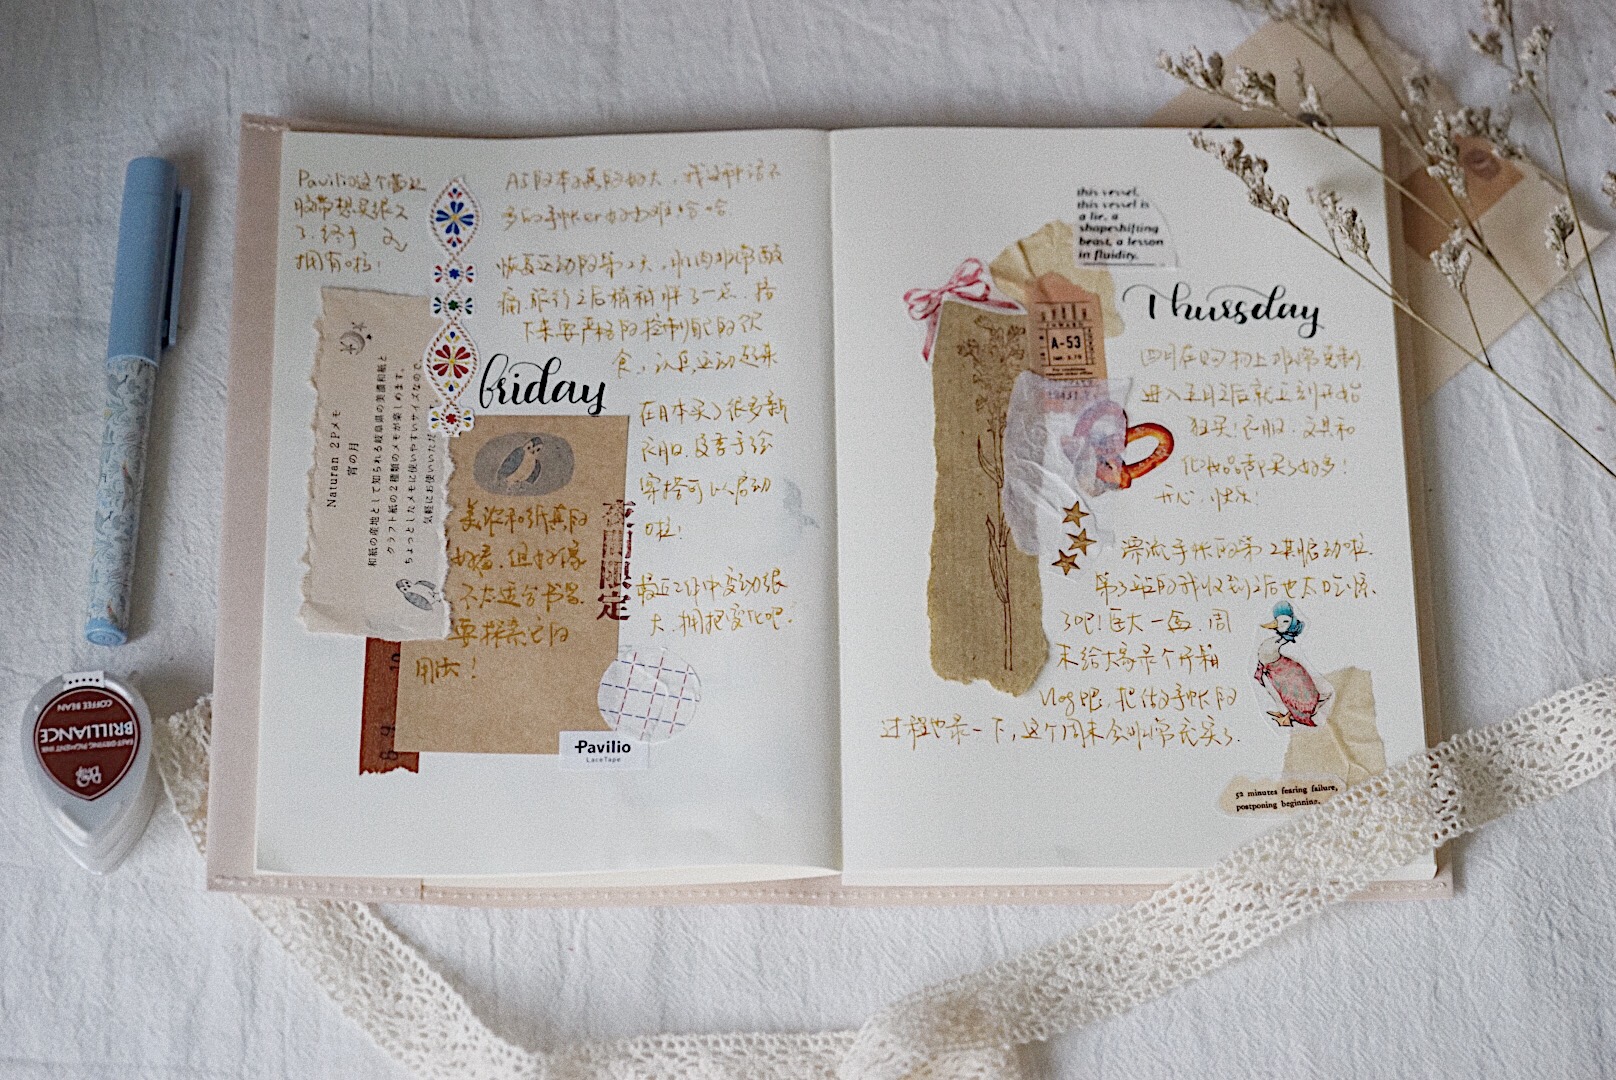 Pavilio这个蕾丝
胶带想买很久
了,终于
拥有啦!
A5的本子真的好大,我这种话不
多的手帐er好为难哈哈
恢复运动的第2天,肌肉非常酸
痛,旅行之后稍稍胖了一点,接
下来要严格的控制自己的饮
食,认真运动起来
friday
在日本买了很多新
衣服,夏季手绘
穿搭可以启动
啦!
最近工作中变动很
大,拥抱变化吧!
Naturan 2Pメモ
宵の月
和紙の産地として知られる岐阜県の美濃和紙と
クラフト紙の2種類のメモが楽しめます。
ちょっとしたメモに使いやすいサイズなので、
気軽にお使いいただ
美浓和纸真的
好看,但好像
不太适合书写.
要探索它的
用法!
限定
10
8 9
Pavilio
LaceTape
this vessel,
this vessel is
a lie, a
shapeshifting
beast, a lesson
in fluidity.
Thursday
A-53
四月在购物上非常克制
进入五月之后就立刻开始
狂买!衣服、文具和
化妆品都买了好多!
开心,快乐!
漂流手帐的第2期启动啦.
第3站的我收到之后也太吃惊
了吧!巨大一盒,周
末给大家录个开箱
vlog吧,把做手帐的
过程也录一下,这个周末会非常充实了.
52 minutes fearing failure,
postponing beginning.
COFFEE BEAN
BRILLIANCE
FAST-DRYING PIGMENT INK